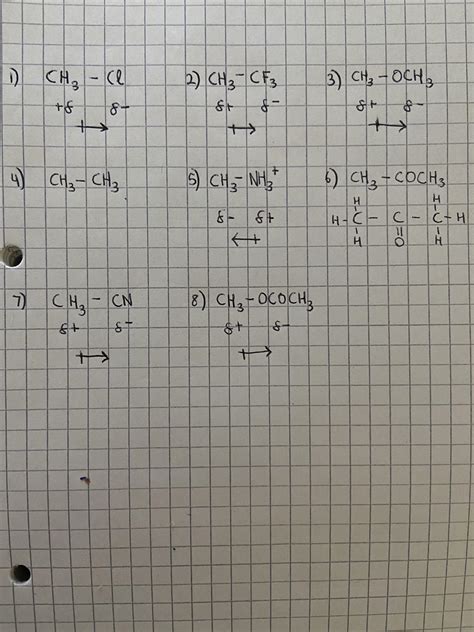 1) CH₃ – Cl 2) CH₃ – CF₃ 3) CH₃ – OCH₃
+δ δ- δ+ δ- δ+ δ-
4) CH₃ – CH₃ 5) CH₃ – NH₃⁺ 6) CH₃ – COCH₃
H H
δ- δ+ H – C – C – C – H
H O H
7) CH₃ – CN 8) CH₃ – OCOCH₃
δ+ δ- δ+ δ-